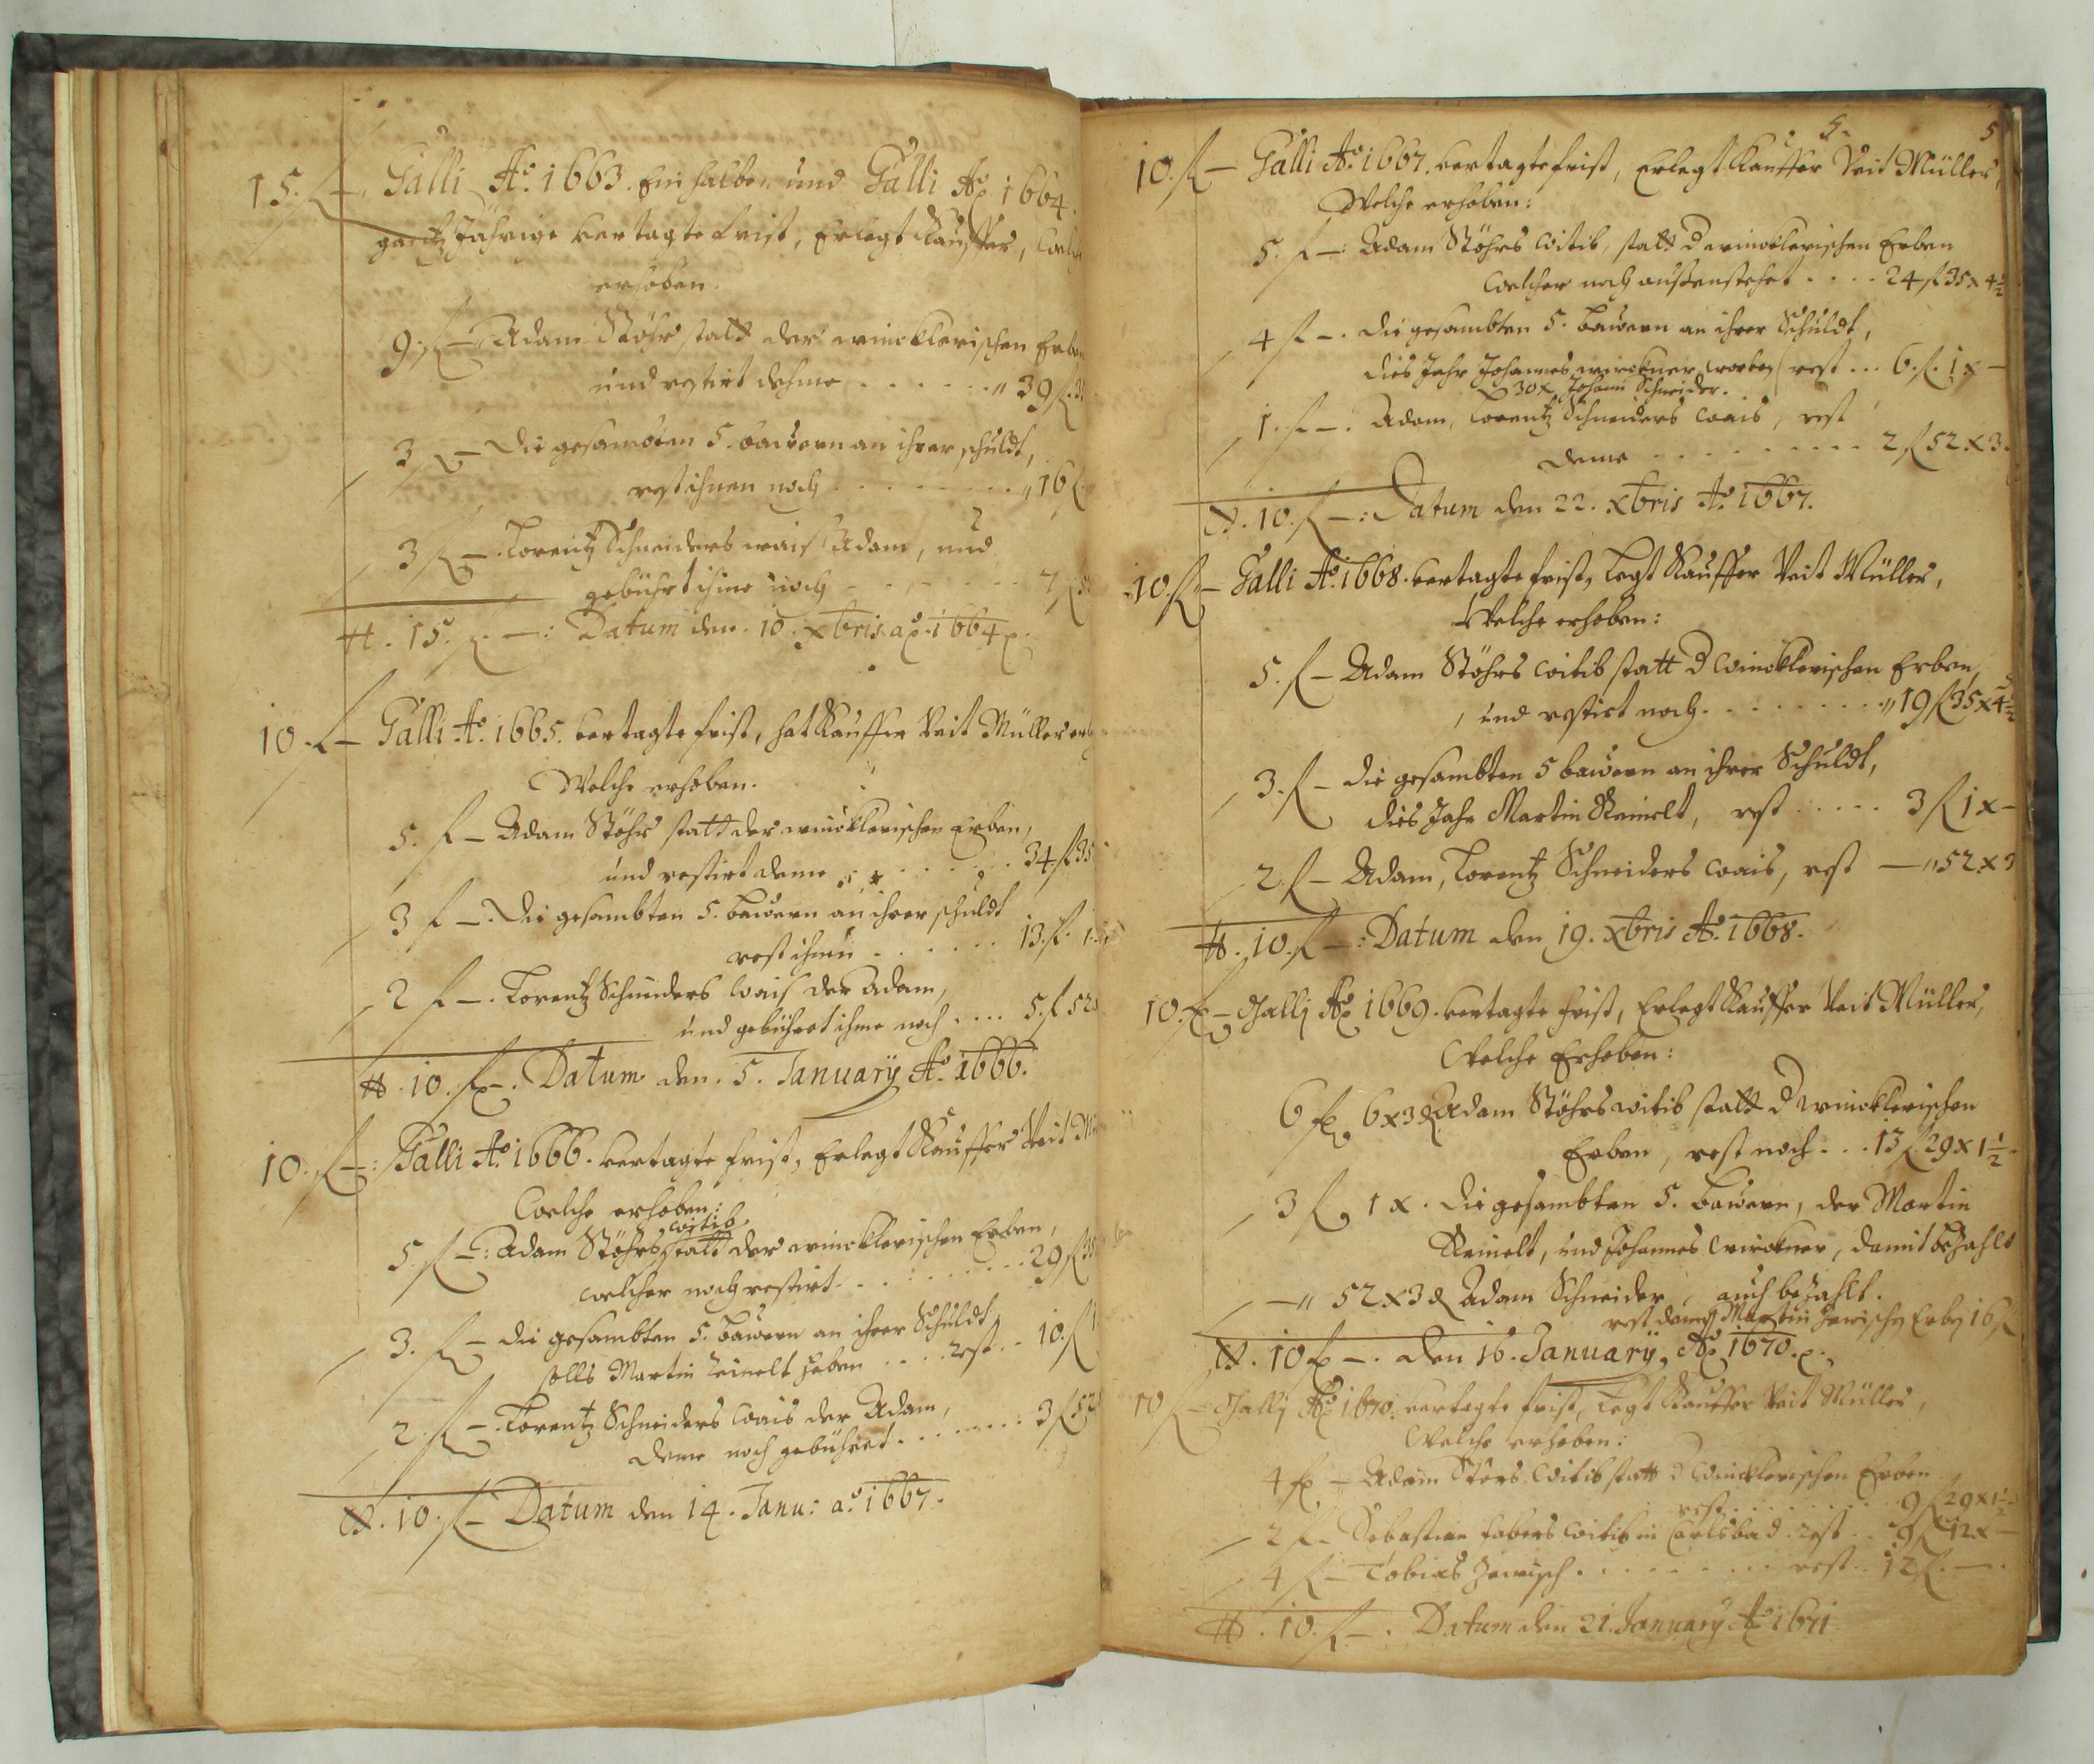 15. f — Galli Ao. 1663. Ein halbe, und Galli Ao 1664.
gantz Jährige vertagte frist, Erlegt Kauffer,
erhoben.
9. f — Adam Stöhr statt der wincklerischen Erben
und restirt dehme . . . . . . " 39 f.
3 f — Die gesambten 5. bawern an ihrer schuldt,
rest ihnen noch . . . . . . . " 16 f.
3 f — . Lorentz Schneiders wais Adam, und
gebührt ihme noch . . . . . . 7 f
15. f —: Datum den 10. xbris ao. 1664
10 f — Galli Ao. 1665. vertagte frist, hat Kauffer Veit Müller
Welche erhoben.
5. f — Adam Stöhr statt der wincklerischen Erben,
und restirt deme . . . . . . 34. f 35
3 f — . Die gesambten 5. bawern an ihrer schuldt
rest ihnen . . . . . . 13. f. 1
2 f — . Lorentz Schneiders wais der Adam,
und gebühret ihme noch . . . . 5. f 52
10. f — . Datum den 5. January Ao. 1666.
10. f —: Galli Ao. 1666. vertagte frist, Erlegt Kauffer Veit
Welche erhoben:
witib
5. f —: Adam Stöhrs statt der wincklerischen Erben,
welcher noch restirt . . . . . . . . 29 f 35
3. f — die gesambten 5. bawern an ihrer Schuldt
solls Martin Reinelt haben . . . . rest . . 10. f 1
2. f — . Lorentz Schneiders wais der Adam,
deme noch gebühret . . . . . . . 3 f 52
10. f — Datum den 14. Janu: ao. 1667.
5
10. f — Galli Ao. 1667. vertagte frist, Erlegt Kauffer Veit Müller,
Welche erhoben:
5. f —: Adam Stöhrs witib, statt d wincklerischen Erben
welcher noch außenstehet . . . . 24 f 35 x 4½
4 f — . die gesambten 5. bawern an ihrer Schuldt,
dies Jahr Johannes rest . . . 6. f. 1 x —
30 x Johann Schneider.
1. f — . Adam, Lorentz Schneiders wais, rest
deme . . . . . . . . . 2 f 52 x 3
10. f —: Datum den 22. xbris Ao. 1667.
10. f — Galli Ao. 1668. vertagte frist, Legt Kauffer Veit Müller,
Welche erhoben:
5. f — Adam Stöhrs witib statt d wincklerischen Erben,
und restirt noch . . . . . . . . " 19 f 35 x 4½
3. f — die gesambten 5 bawern an ihrer Schuldt,
dies Jahr Martin Reinelt, rest . . . . . 3 f 1 x —
2. f — Adam, Lorentz Schneiders wais, rest — " 52. x 3
10. f —: Datum den 19. xbris Ao. 1668.
10. f — Gallj Ao 1669. vertagte frist, Erlegt Kauffer Veit Müller,
Welche Erhoben:
6 f 6 x 3 Adam Stöhrs witib statt d wincklerischen
Erben, rest noch . . . 13 f. 29 x 1½
3 f 1 x . die gesambten 5. bawern, der Martin
Reinelt, und Johannes , damit bezahlt
— " 52 x 3 Adam Schneider, auch bezahlt.
rest Martin Erben 16 f
10 f — . den 16. January, Ao 1670.
10 f — Gallj Ao 1670. vertagte frist, Legt Kauffer Veit Müller,
Welche erhoben:
4 f — Adam Störs witib statt d wincklerischen Erben
rest . . . . . . . . 9 f 29 x 1½
2 f — Sebastian witib in Carlsbad rest . . 9 f 12 x —
4 f — Tobias . . . . . . . . rest . . 12 f. —
10. f — . Datum den 21. January Ao 1671